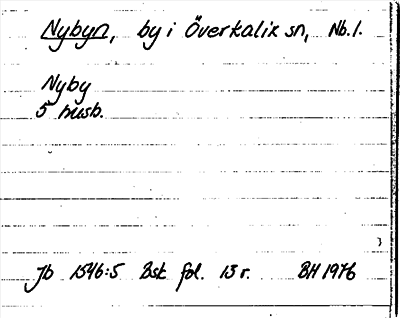 Nybyn, by i Överkalix sn, Nb.l.
Nyby
5 husb.
Jb 1546:5 Bst fol. 13 r. BH 1976